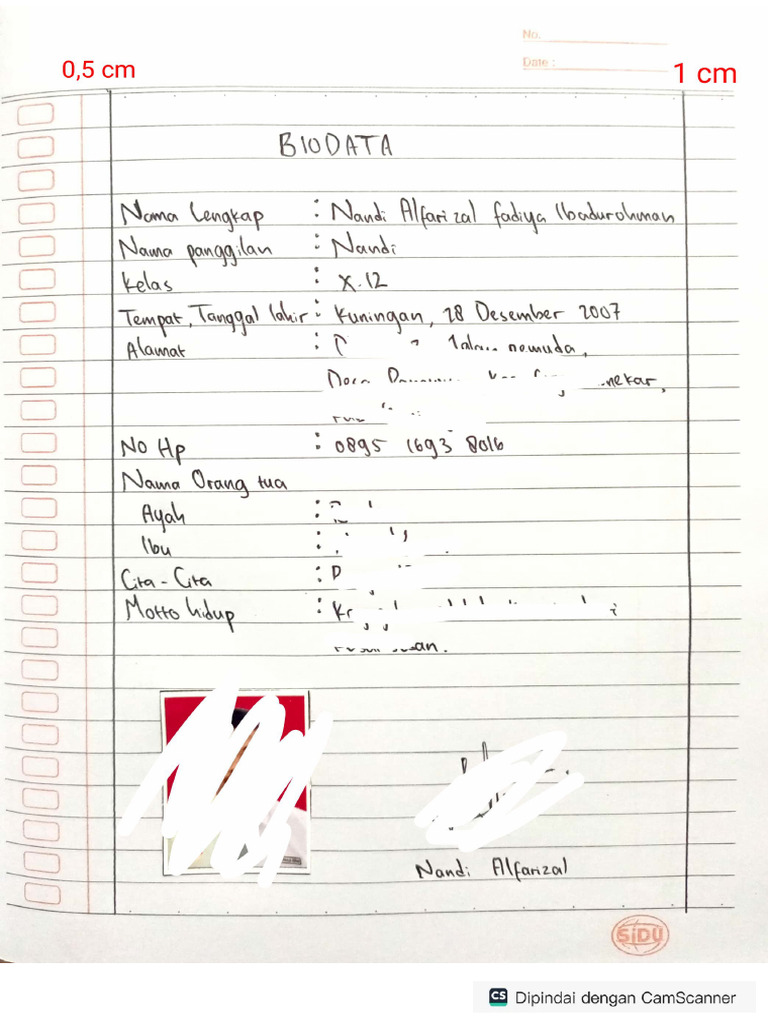 No.
Date :
0,5 cm
1 cm
BIODATA
Nama Lengkap : Nandi Alfarizal fadiya Ibadurohman
Nama panggilan : Nandi
Kelas : X.12
Tempat, Tanggal lahir : Kuningan, 28 Desember 2007
Alamat :
No Hp : 0895 1693 8016
Nama Orang tua
Ayah :
Ibu :
Cita - Cita :
Motto hidup :
Nandi Alfarizal
SIDU
CS Dipindai dengan CamScanner